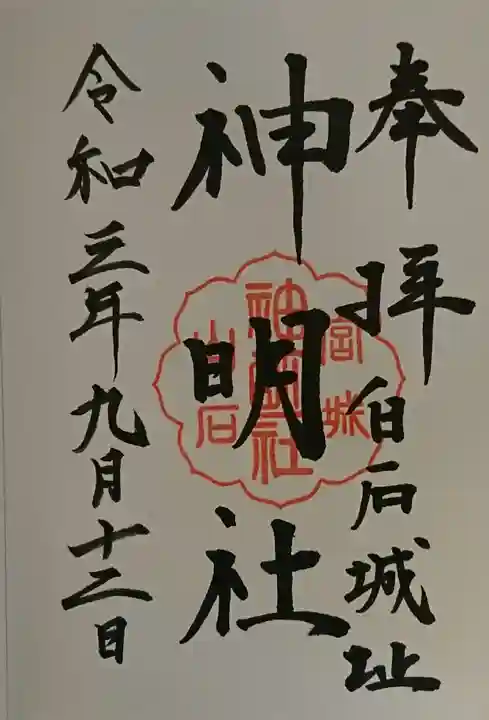 奉拝
白石城址
神明社
宮城
神明社
白石
令和三年九月十二日